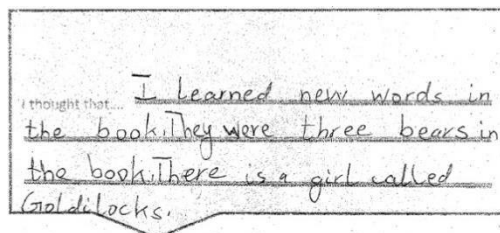 I thought that.... I learned new words in
the book.They were three bears in
the book.There is a girl called
Goldilocks.